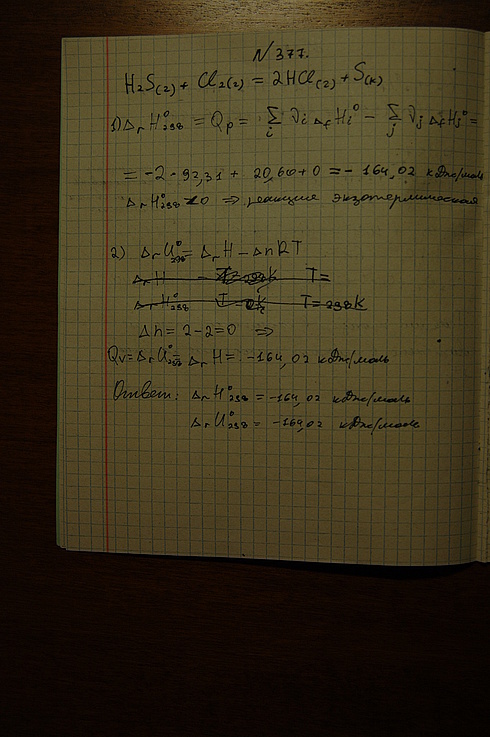 N 377.
H₂S(г) + Cl₂(г) = 2HCl(г) + S(к)
1) ΔrH°₂₉₈ = Qp = Σi νi ΔfHi° − Σj νj ΔfHj° =
= −2 · 92,31 + 20,60 + 0 = −164,02 кДж/моль
ΔrH°₂₉₈ < 0 ⇒ реакция экзотермическая
2) ΔrU°₂₉₈ = ΔrH − ΔnRT
ΔrH − T=
ΔrH°₂₉₈ T=298K
Δn = 2−2=0 ⇒
Qv = ΔrU°₂₉₈ = ΔrH = −164,02 кДж/моль
Ответ: ΔrH°₂₉₈ = −164,02 кДж/моль
ΔrU°₂₉₈ = −164,02 кДж/моль